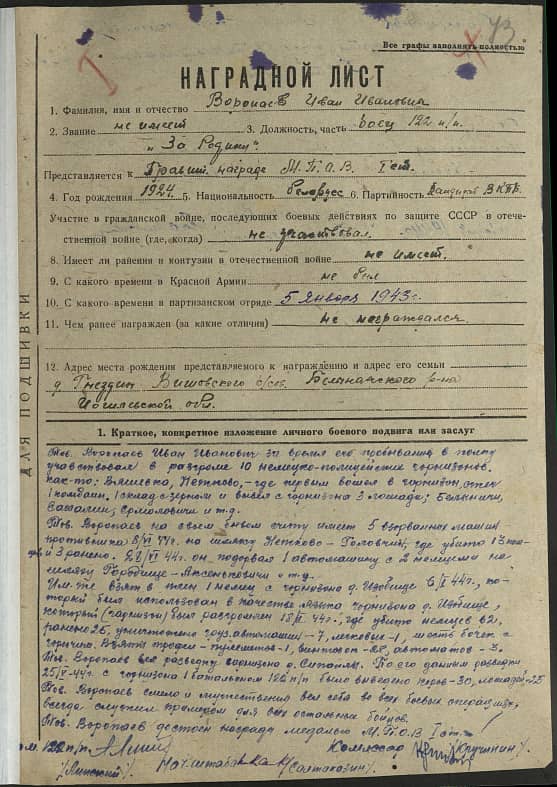 73
Все графы заполнять полностью
НАГРАДНОЙ ЛИСТ
1. Фамилия, имя и отчество Воропаев Иван Иванович
2. Звание не имеет 3. Должность, часть боец 122 п/п.
„За Родину"
Представляется к Правит. награде М.П.О.В. I ст.
4. Год рождения 1924. 5. Национальность белорус 6. Партийность Кандидат ВКПб.
Участие в гражданской войне, последующих боевых действиях по защите СССР в отече-
ственной войне (где, когда) не участвовал.
8. Имеет ли ранения и контузии в отечественной войне не имеет.
9. С какого времени в Красной Армии не был
10. С какого времени в партизанском отряде 5 января 1943 г.
11. Чем ранее награжден (за какие отличия) не награждался.
12. Адрес места рождения представляемого к награждению и адрес его семьи
д. Вишовского с/сов. Белыничского р-на
Могилевской обл.
ДЛЯ ПОДШИВКИ
1. Краткое, конкретное изложение личного боевого подвига или заслуг
Тов. Воропаев Иван Иванович за время его пребывания в полку
участвовал в разгроме 10 немецко-полицейских гарнизонов.
как-то: где первым вошел в гарнизон,
1 комбайн, 1 склад с зерном и вывел с гарнизона 3 лошади; Белыничи,
и т.д.
Тов. Воропаев на своем боевом счету имеет 5 взорванных машин
противника 44 г. на шляху Головчин, где убито 13
и 3 ранено. 44 г. он подорвал 1 автомашину с 2 немцами на
шляху Городище- и т.д.
Им же взят в плен 1 немец с гарнизона д. 44 г., ко-
торый был использован в качестве гарнизона д.
который (гарнизон) был разгромлен 44 г., где убито немцев 82,
ранено 25, уничтожено груз. автомашин-7, легковых-1, шесть бочек с
горючим. Взяты трофеи- пулеметов-1, винтовок-28, автоматов-3.
Тов. Воропаев вел разведку гарнизона д. По его данным разведки
44 г. с гарнизона 1 батальоном 122 п/п было выведено коров-30, лошадей-25
Тов. Воропаев смело и мужественно вел себя во всех боевых операциях,
всегда служил примером для всех остальных бойцов.
Тов. Воропаев достоин награды медалью М.П.О.В I ст.
122 п/п Комиссар
Нач. штаба